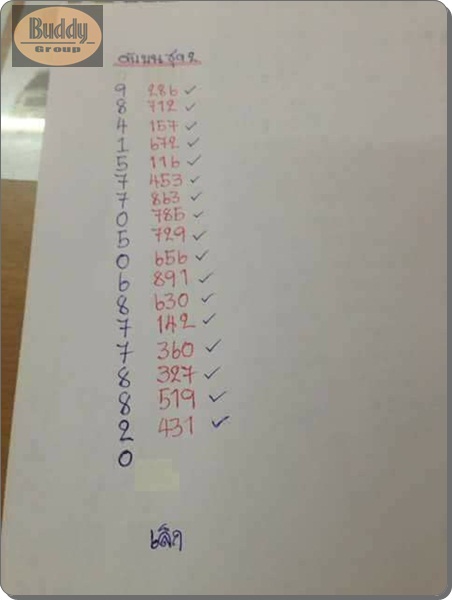 Buddy
Group
ดับบนชุด 2
9 286 ✓
8 712 ✓
4 157 ✓
1 672 ✓
5 116 ✓
7 453 ✓
7 863 ✓
0 785 ✓
5 729 ✓
0 656 ✓
6 891 ✓
8 630 ✓
7 142 ✓
7 360 ✓
8 327 ✓
8 519 ✓
2 431 ✓
0